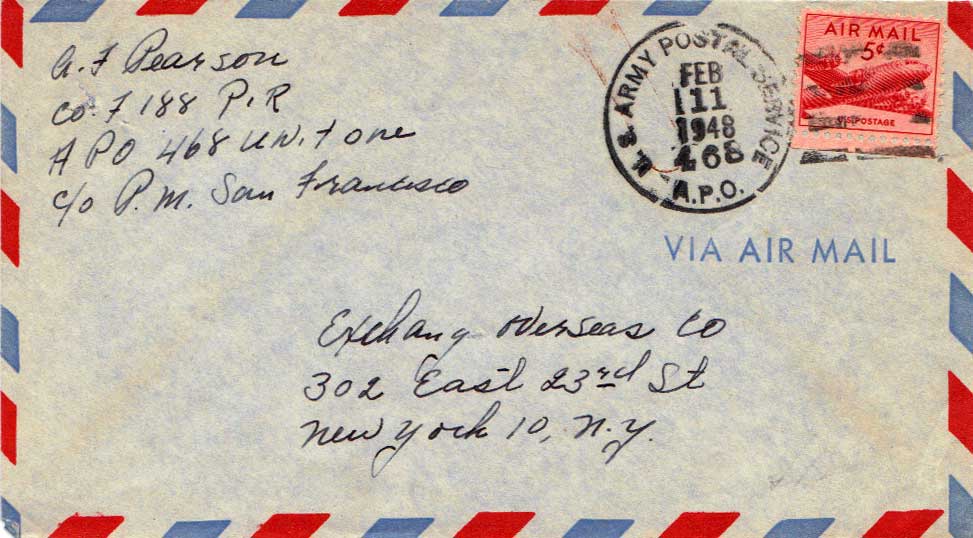 A. F Pearson
Co. F 188 P.I.R
A PO 468 Unit one
c/o P.M. San Francisco
U. S. ARMY POSTAL SERVICE
FEB
11
1948
468
A.P.O.
AIR MAIL
5¢
U.S. POSTAGE
VIA AIR MAIL
Exchang Overseas Co
302 East 23rd St
New York 10, N.Y.